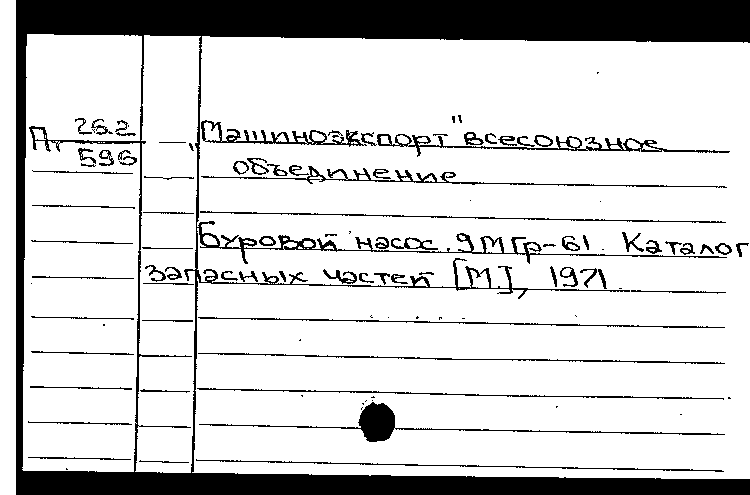 Пт 26.2
596
"Машиноэкспорт" всесоюзное
объединение
Буровой насос 9МГр-61. Каталог
запасных частей [М], 1971